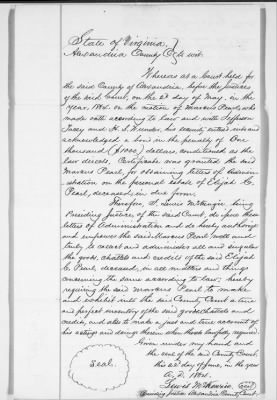 State of Virginia,
Alexandria County, to wit:
Whereas at a Court held for
the said County of Alexandria, before the Justices
of the said Court, on the 2d day of May, in the
year, 1864. on the motion of Marcus Pearl, who
made oath according to law and with Jefferson
Tacey and H. S. Wunder, his security entered into and
acknowledged a bond in the penalty of One
thousand ($1000) dollars, conditioned as the
law directs, Certificate was granted the said
Marcus Pearl, for obtaining letters of Admin-
istration on the personal estate of Elijah C.
Pearl, deceased, in due form:
Therefore, I, Lewis McKenzie being
Presiding Justice, of the said Court, do give these
letters of Administration and do hereby authorize
and empower the said Marcus Pearl well and
truly to collect and administer all and singular
the goods, chattels and credits of the said Elijah
C. Pearl, deceased, in all matters and things
concerning the same according to law; hereby
requiring the said Marcus Pearl to make
and exhibit into the said County Court a true
and perfect inventory of the said goods, chattels and
credits, and also to make a just and true account of
his actings and doings therein when thereto lawfully required.
Given under my hand and
the seal of the said County Court,
this 22d day of June, in the year
A.D. 1864.
Seal.
Lewis McKenzie, Seal
Presiding Justice Alexandria County Court.